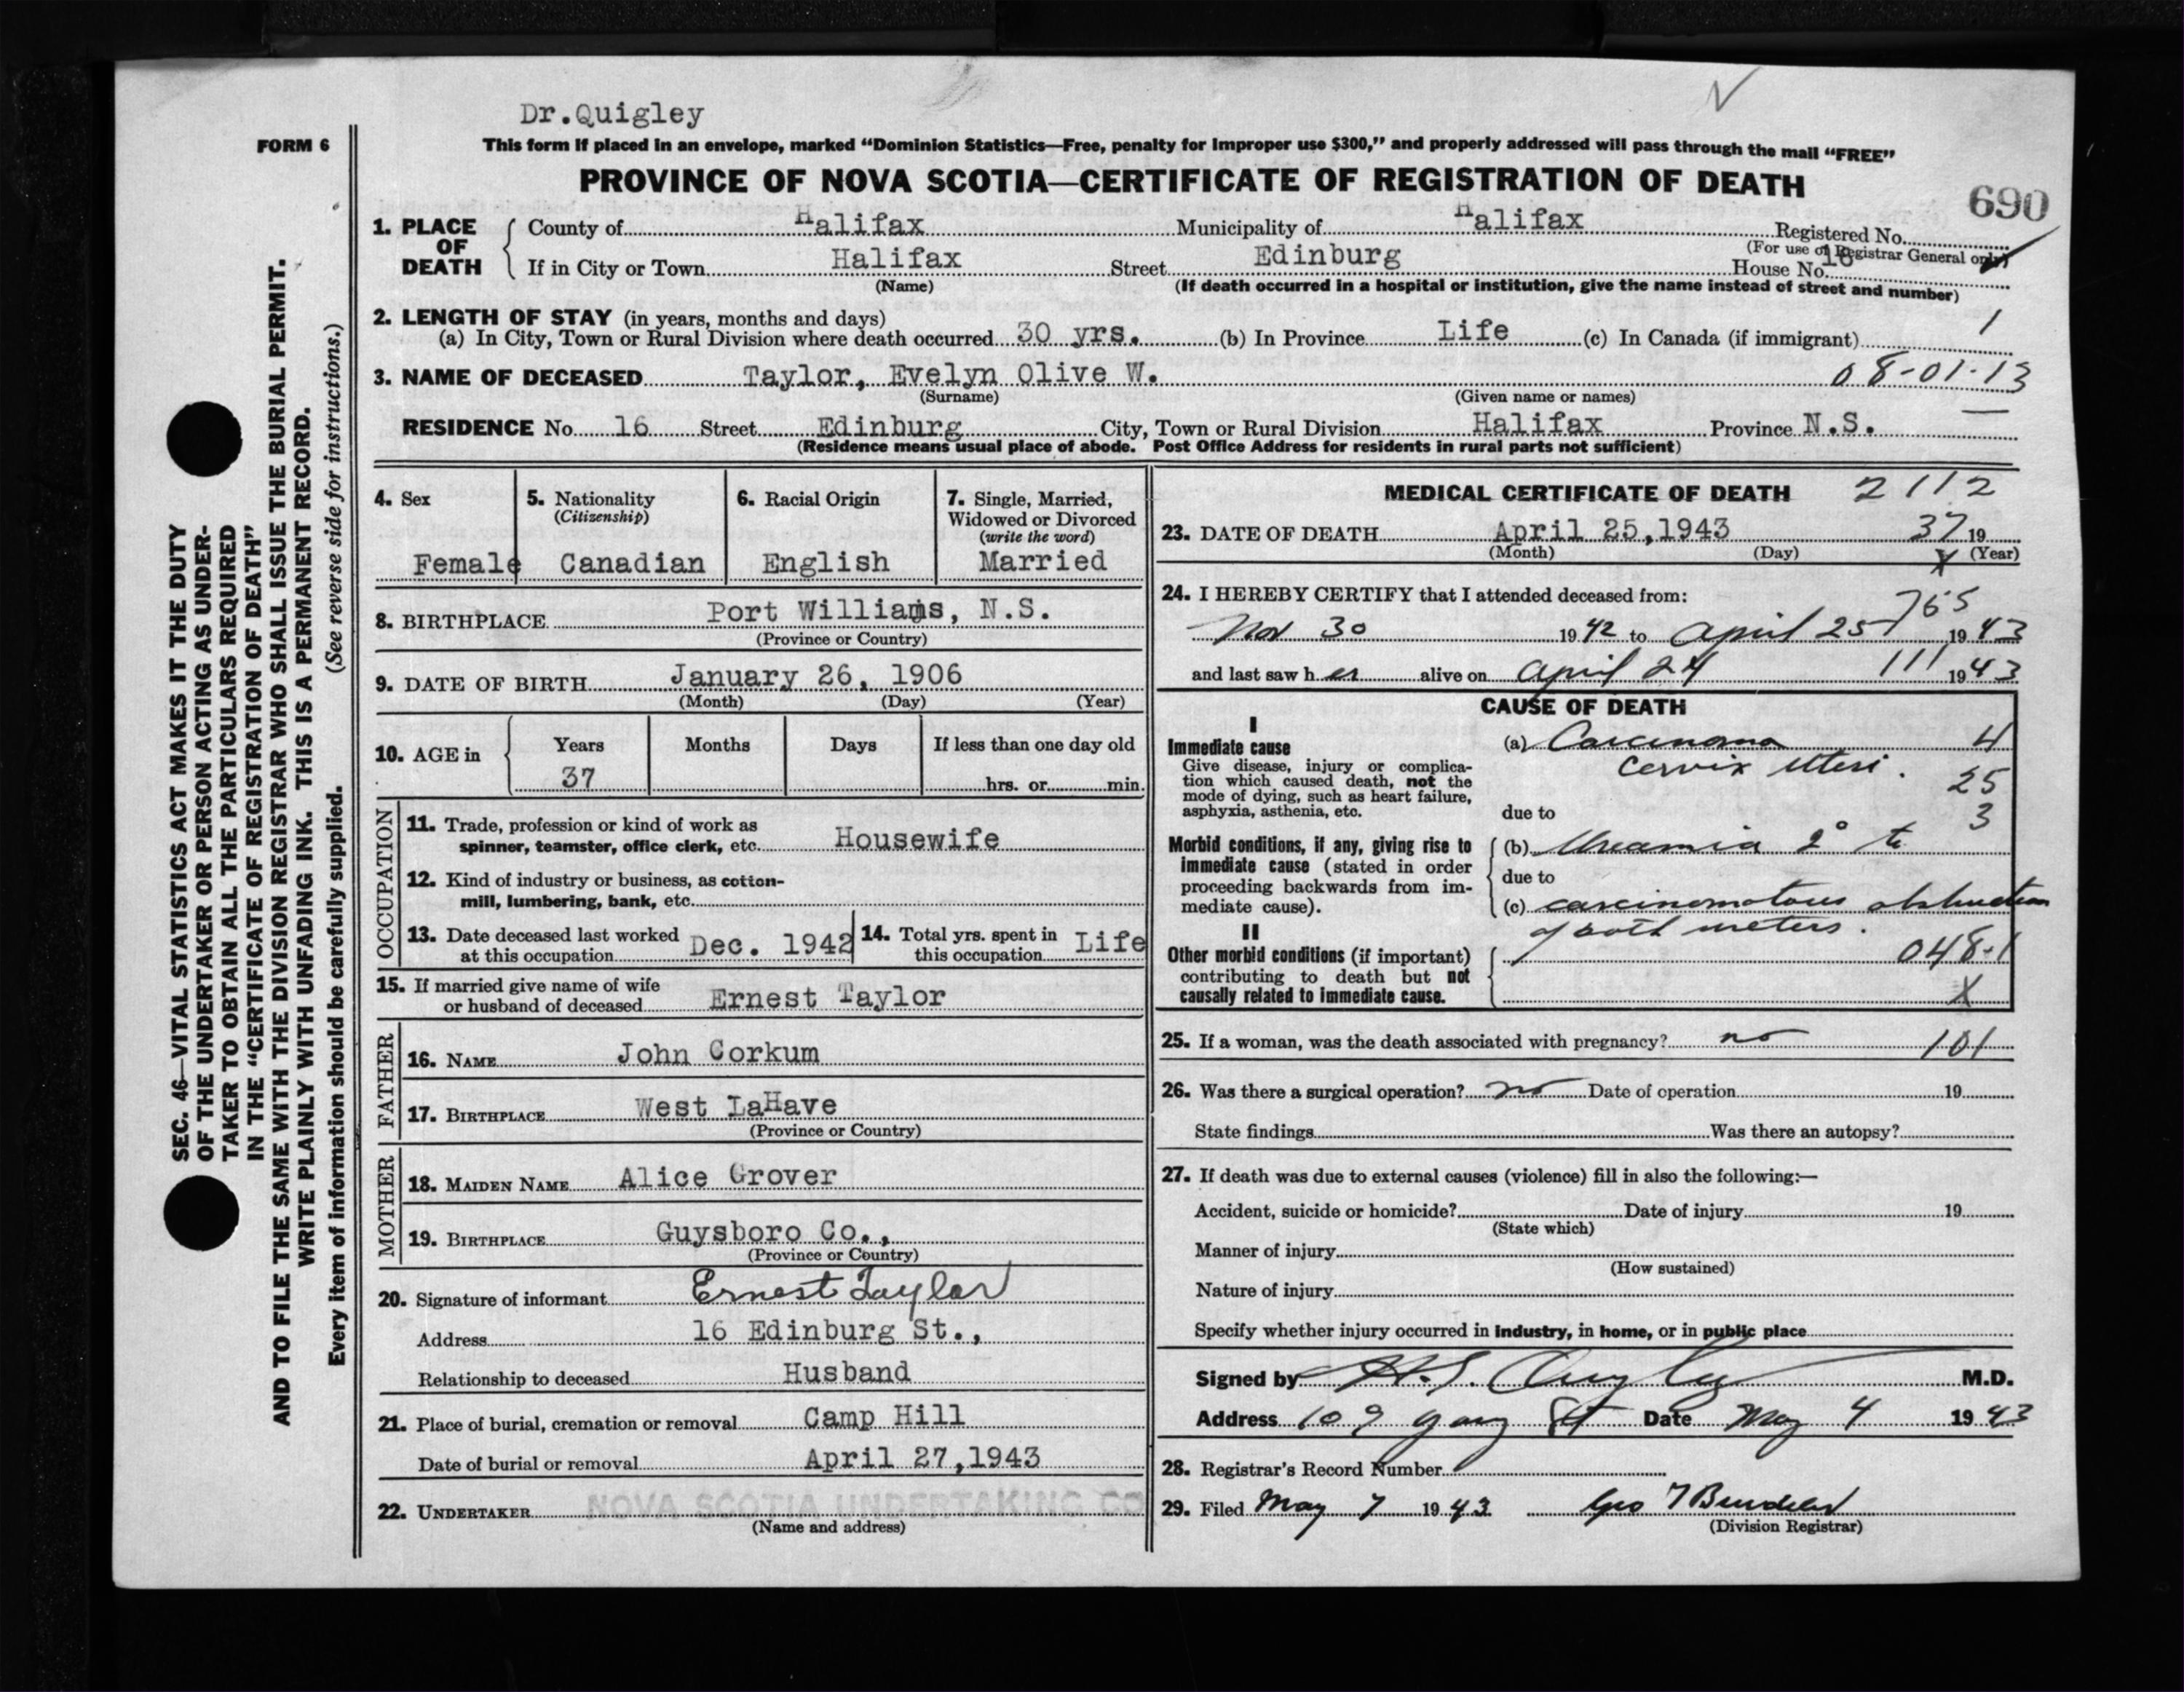 Dr.Quigley
FORM 6
This form if placed in an envelope, marked "Dominion Statistics—Free, penalty for improper use $300," and properly addressed will pass through the mail "FREE"
PROVINCE OF NOVA SCOTIA—CERTIFICATE OF REGISTRATION OF DEATH
690
1. PLACE OF DEATH County of Halifax Municipality of Halifax Registered No.
(For use of Registrar General only)
If in City or Town Halifax Street Edinburg House No. 16
(Name) (If death occurred in a hospital or institution, give the name instead of street and number)
2. LENGTH OF STAY (in years, months and days)
(a) In City, Town or Rural Division where death occurred 30 yrs. (b) In Province Life (c) In Canada (if immigrant) 1
3. NAME OF DECEASED Taylor, Evelyn Olive W. 08-01-13
(Surname) (Given name or names)
RESIDENCE No. 16 Street Edinburg City, Town or Rural Division Halifax Province N.S.
(Residence means usual place of abode. Post Office Address for residents in rural parts not sufficient)
SEC. 46—VITAL STATISTICS ACT MAKES IT THE DUTY
OF THE UNDERTAKER OR PERSON ACTING AS UNDER-
TAKER TO OBTAIN ALL THE PARTICULARS REQUIRED
IN THE "CERTIFICATE OF REGISTRATION OF DEATH"
AND TO FILE THE SAME WITH THE DIVISION REGISTRAR WHO SHALL ISSUE THE BURIAL PERMIT.
WRITE PLAINLY WITH UNFADING INK. THIS IS A PERMANENT RECORD.
Every item of information should be carefully supplied. (See reverse side for instructions.)
4. Sex
Female
5. Nationality
(Citizenship)
Canadian
6. Racial Origin
English
7. Single, Married,
Widowed or Divorced
(write the word)
Married
8. BIRTHPLACE Port Williams, N.S.
(Province or Country)
9. DATE OF BIRTH January 26, 1906
(Month) (Day) (Year)
10. AGE in Years Months Days If less than one day old
37 hrs. or min.
OCCUPATION
11. Trade, profession or kind of work as
spinner, teamster, office clerk, etc. Housewife
12. Kind of industry or business, as cotton-
mill, lumbering, bank, etc.
13. Date deceased last worked
at this occupation Dec. 1942
14. Total yrs. spent in
this occupation Life
15. If married give name of wife
or husband of deceased Ernest Taylor
FATHER
16. NAME John Corkum
17. BIRTHPLACE West LaHave
(Province or Country)
MOTHER
18. MAIDEN NAME Alice Grover
19. BIRTHPLACE Guysboro Co.,
(Province or Country)
20. Signature of informant Ernest Taylor
Address 16 Edinburg St.,
Relationship to deceased Husband
21. Place of burial, cremation or removal Camp Hill
Date of burial or removal April 27,1943
22. UNDERTAKER NOVA SCOTIA UNDERTAKING CO
(Name and address)
MEDICAL CERTIFICATE OF DEATH 2112
23. DATE OF DEATH April 25,1943 37 19
(Month) (Day) X (Year)
24. I HEREBY CERTIFY that I attended deceased from:
765
Nov 30 1942 to April 25 1943
and last saw her alive on April 24 111 1943
CAUSE OF DEATH
I
Immediate cause
Give disease, injury or complica-
tion which caused death, not the
mode of dying, such as heart failure,
asphyxia, asthenia, etc.
(a) Carcinoma 4
Cervix Uteri. 25
due to 3
Morbid conditions, if any, giving rise to
immediate cause (stated in order
proceeding backwards from im-
mediate cause).
(b) Ureamia 2° to
due to
(c) carcinomatous obstruction
of both ureters.
II
Other morbid conditions (if important)
contributing to death but not
causally related to immediate cause.
048-1
X
25. If a woman, was the death associated with pregnancy? no 101
26. Was there a surgical operation? no Date of operation 19
State findings Was there an autopsy?
27. If death was due to external causes (violence) fill in also the following:—
Accident, suicide or homicide? Date of injury 19
(State which)
Manner of injury
(How sustained)
Nature of injury
Specify whether injury occurred in industry, in home, or in public place
Signed by H.S. Quigley M.D.
Address 109 Date May 4 1943
28. Registrar's Record Number
29. Filed May 7 1943 Geo
(Division Registrar)